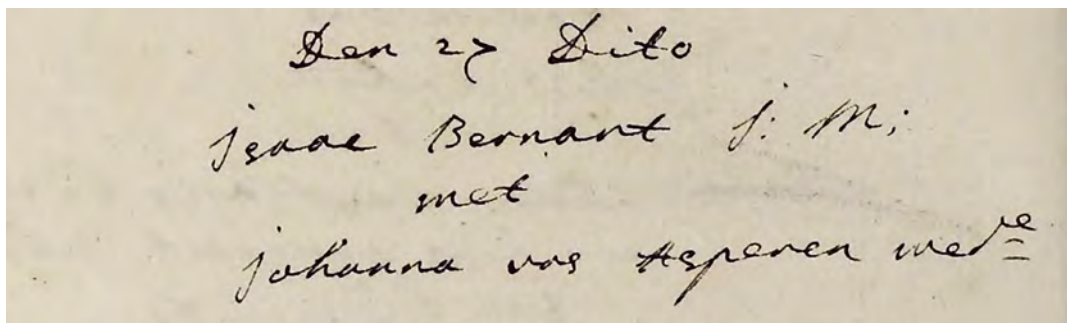 Den 27 Dito
jsaac Bernart j: M;
met
johanna vos Asperen wed^e